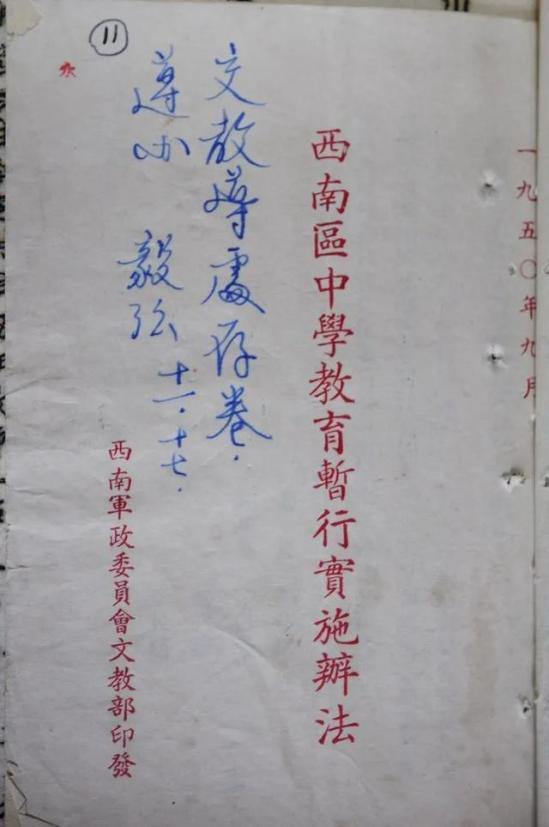 一九五〇年九月
西南區中學教育暫行實施辦法
文教 處存卷.
毅 十一.十七.
西南軍政委員會文教部印發
11